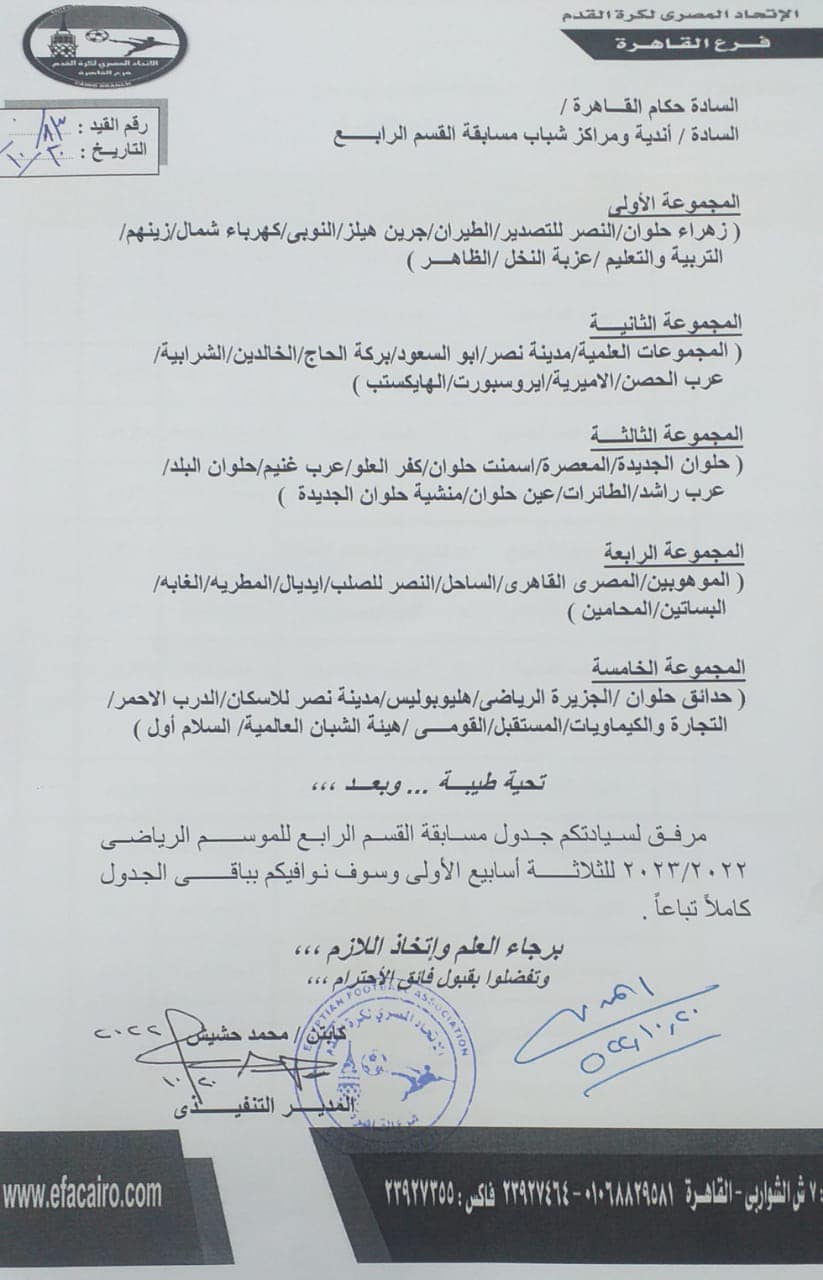 الإتحاد المصرى لكرة القدم
فرع القاهرة
الاتحاد المصرى لكرة القدم
فرع القاهرة
CAIRO BRANCH
رقم القيد : ٨٣
التاريخ : ٢٠/١٠
السادة حكام القاهرة /
السادة / أندية ومراكز شباب مسابقة القسم الرابع
المجموعة الأولى
( زهراء حلوان/النصر للتصدير/الطيران/جرين هيلز/النوبى/كهرباء شمال/زينهم/
التربية والتعليم /عزبة النخل /الظاهر )
المجموعة الثانية
( المجموعات العلمية/مدينة نصر/ابو السعود/بركة الحاج/الخالدين/الشرابية/
عرب الحصن/الاميرية/ايروسبورت/الهايكستب )
المجموعة الثالثة
( حلوان الجديدة/المعصرة/اسمنت حلوان/كفر العلو/عرب غنيم/حلوان البلد/
عرب راشد/الطائرات/عين حلوان/منشية حلوان الجديدة )
المجموعة الرابعة
( الموهوبين/المصرى القاهرى/الساحل/النصر للصلب/ايديال/المطريه/الغابه/
البساتين/المحامين )
المجموعة الخامسة
( حدائق حلوان /الجزيرة الرياضى/هليوبوليس/مدينة نصر للاسكان/الدرب الاحمر/
التجارة والكيماويات/المستقبل/القومى /هيئة الشبان العالمية/ السلام أول )
تحية طيبة ... وبعد ،،،
مرفق لسيادتكم جدول مسابقة القسم الرابع للموسم الرياضى
٢٠٢٣/٢٠٢٢ للثلاثة أسابيع الأولى وسوف نوافيكم بباقى الجدول
كاملاً تباعاً .
برجاء العلم وإتخاذ اللازم ،،،
وتفضلوا بقبول فائق الأحترام ،،،
EGYPTIAN FOOTBALL ASSOCIATION
الاتحاد المصرى لكرة القدم
فرع القاهرة
كابتن / محمد حشيش
٢٠٢٢
٢٠/١٠
المدير التنفيذى
: ٧ ش الشواربى - القاهرة ٠١٠٦٨٨٢٩٥٨١ - ٢٣٩٢٧٤٦٤ فاكس : ٢٣٩٢٧٣٥٥
www.efacairo.com